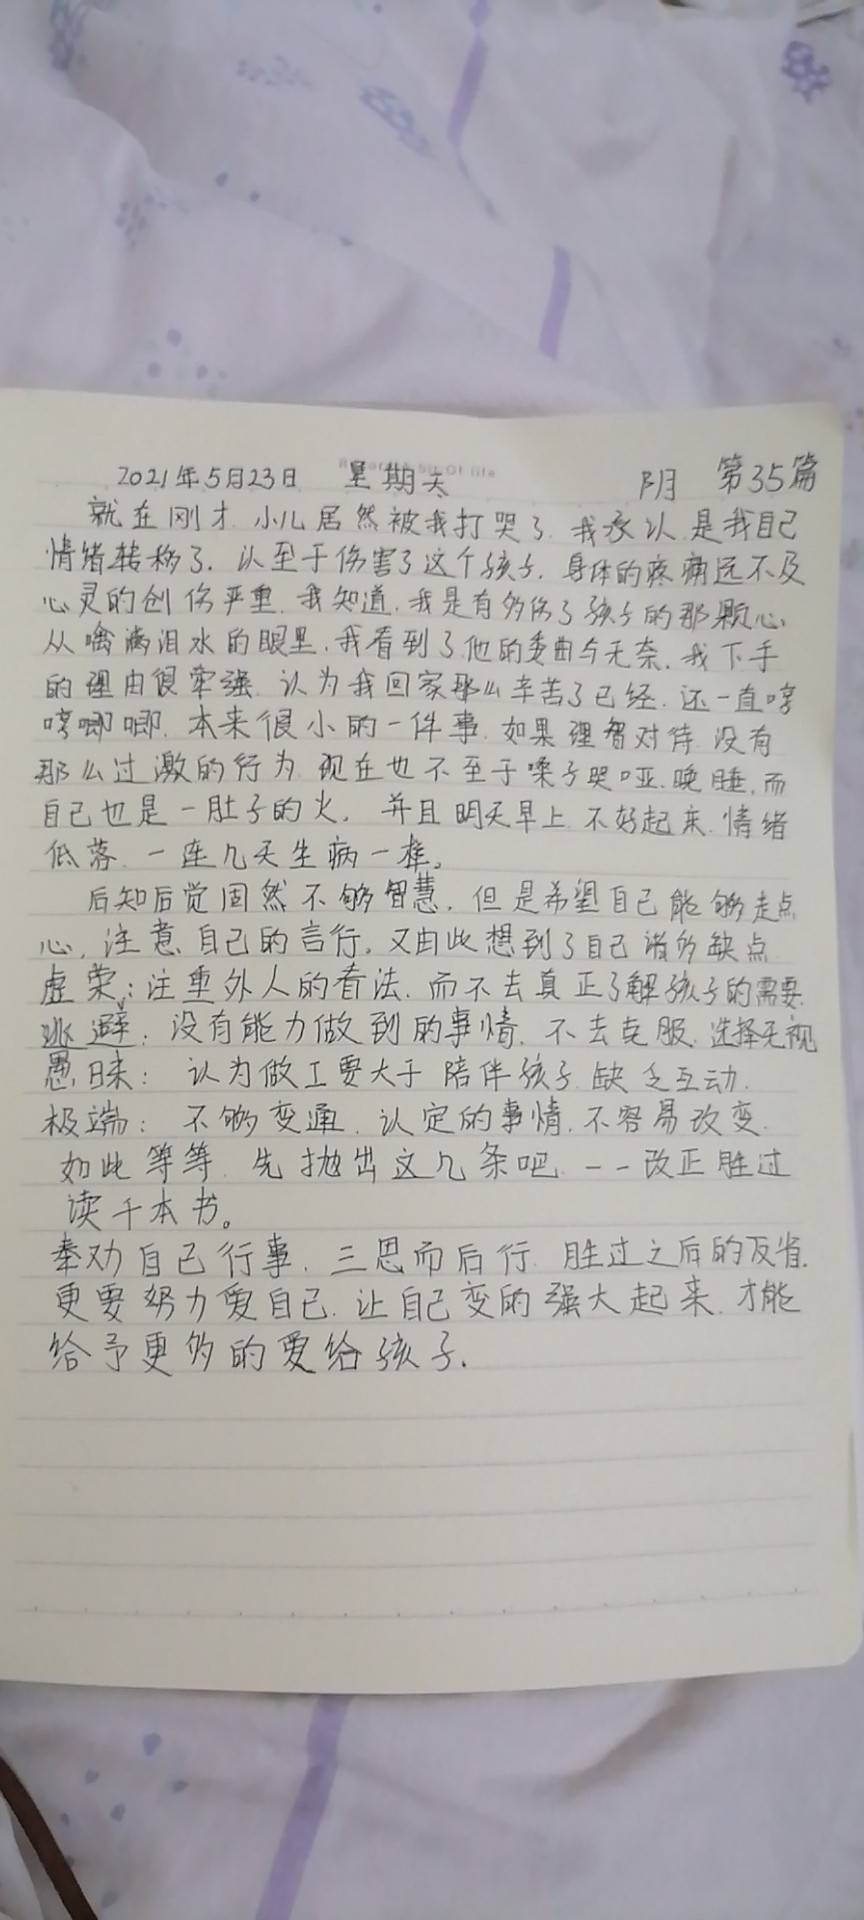 2021年5月23日 星期天 阴 第35篇
就在刚才,小儿居然被我打哭了,我承认,是我自己
情绪转移了,以至于伤害了这个孩子,身体的疼痛远不及
心灵的创伤严重,我知道,我是有多伤了孩子的那颗心,
从噙满泪水的眼里,我看到了他的委曲与无奈,我下手
的理由很牵强,认为我回家那么辛苦了已经,还一直哼
哼唧唧,本来很小的一件事,如果理智对待,没有
那么过激的行为,现在也不至于嗓子哭哑,晚睡,而
自己也是一肚子的火,并且明天早上不好起来,情绪
低落,一连几天生病一样。
后知后觉固然不够智慧,但是希望自己能够走点
心,注意自己的言行,又由此想到了自己诸多缺点
虚荣:注重外人的看法,而不去真正了解孩子的需要
逃避:没有能力做到的事情,不去克服,选择无视
愚昧:认为做工要大于陪伴孩子,缺乏互动.
极端:不够变通,认定的事情,不容易改变.
如此等等,先抛出这几条吧,一一改正胜过
读千本书。
奉劝自己行事,三思而后行,胜过之后的反省.
更要努力爱自己,让自己变的强大起来,才能
给予更多的爱给孩子.